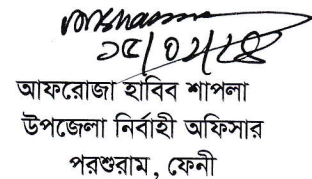 ১৫/০২/২৪
আফরোজা হাবিব শাপলা
উপজেলা নির্বাহী অফিসার
পরশুরাম, ফেনী